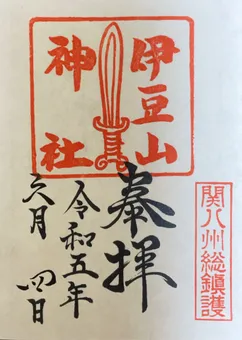 伊豆山
神社
奉拝
令和五年
六月 四日
関八州総鎮護